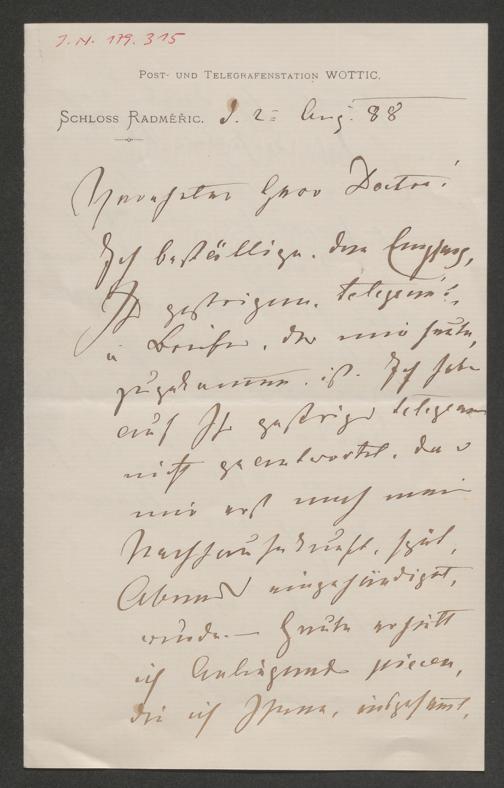 J. N. 179.315
POST- UND TELEGRAFENSTATION WOTTIC.
SCHLOSS RADMĚŘIC. d. 2= Aug. 88
Verehrter Herr Doctor!
Ich bestättige den Empfang,
Ihr gestrigen Telegram's,
u Briefes, der mir heute,
zugekommen ist. Ich habe
auf Ihr gestriges Telegram
nicht geantwortet, da
mir erst nach mein
Nachhausekunft, spät,
Abends eingehändigt,
wurde. — Heute erhielt
ich Anliegende piecen,
die ich Ihnen,